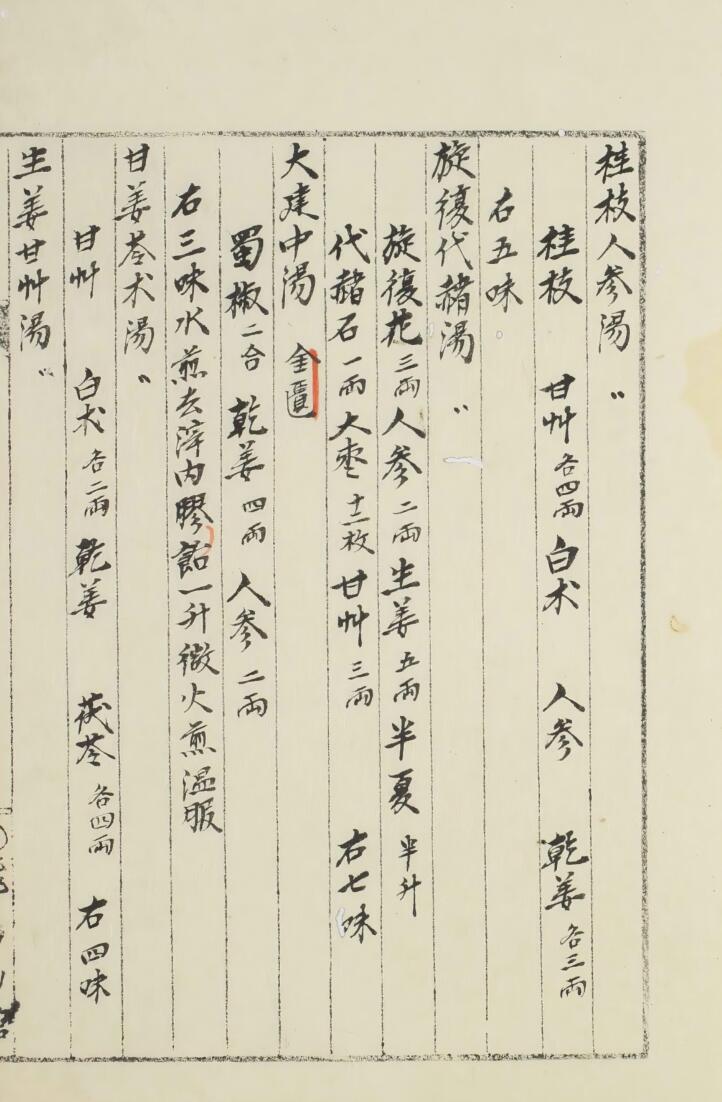 桂枝人参湯 〃
桂枝 甘艸各四兩 白术 人参 乾姜各三兩
右五味
旋復代赭湯 〃
旋復花三兩 人参二兩 生姜五兩 半夏半升
代赭石一兩 大枣十二枚 甘艸三兩 右七味
大建中湯 金匱
蜀椒二合 乾姜四兩 人参二兩
右三味水煎去滓内膠飴一升微火煎温服
甘姜苓术湯 〃
甘艸 白术各二兩 乾姜 茯苓各四兩 右四味
生姜甘艸湯 〃